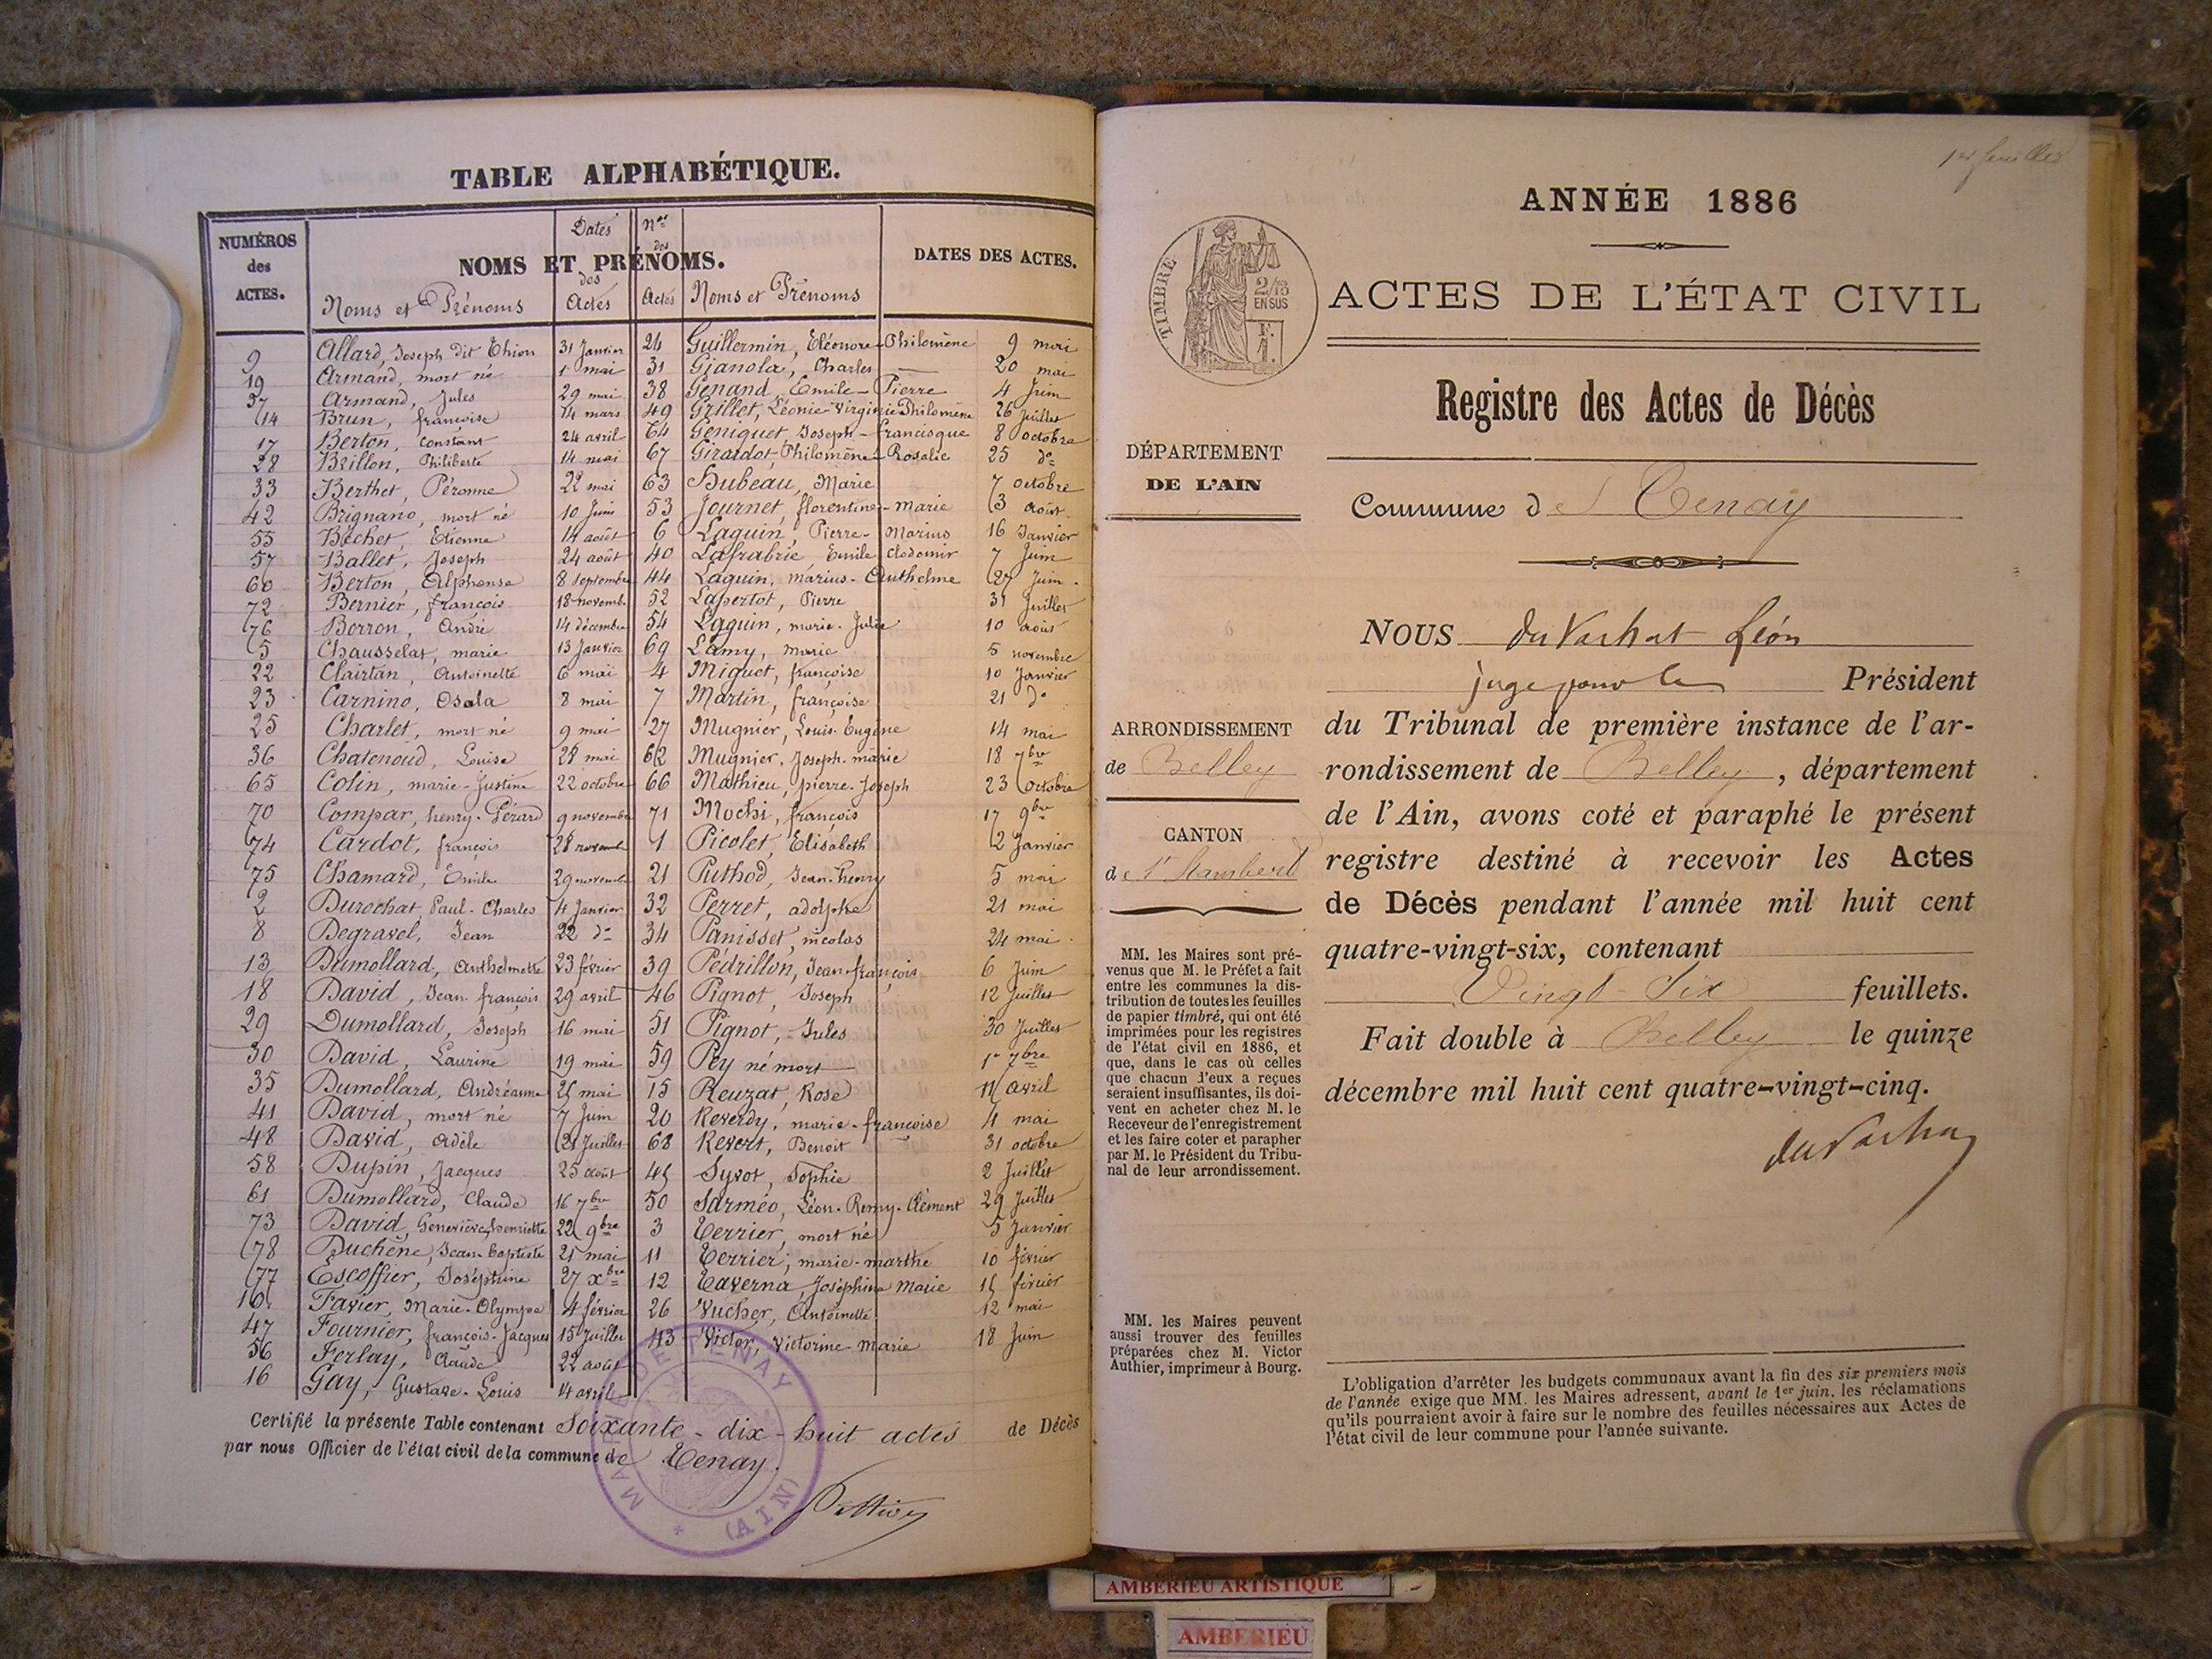 TABLE ALPHABÉTIQUE.
NUMÉROS des ACTES.
NOMS ET PRÉNOMS.
DATES DES ACTES.
Noms et Prénoms Dates des Actes Nos des Actes Noms et Prénoms
9 Allard, Joseph dit Thion 31 Janvier 24 Guillermin, Eléonore-Philomène 9 mai
19 Armand, mort né 1r mai 31 Gianola, Charles 20 mai
37 Armand, Jules 29 mai 38 Genand Emile-Pierre 4 Juin
14 Brun, françoise 14 mars 49 Grillet, Léonie Virginie Philomène 26 Juillet
17 Berton, Constant 24 avril 64 Geniquet, Joseph-francisque 8 octobre
28 Brillon, Philiberte 14 mai 67 Girardot, Philomène-Rosalie 25 do
33 Berthet, Péronne 22 mai 63 Hubeau, Marie 7 octobre
42 Brignano, mort né 10 Juin 53 Journet, florentine-marie 3 août
55 Béchet, Etienne 14 août 6 Laguin, Pierre-Marius 16 Janvier
57 Ballet, Joseph 24 août 40 Lafrabrie Emile Clodomir 7 Juin
60 Berton, Alphonse 8 septembre 44 Laguin, marius-Anthelme 27 Juin
72 Bernier, françois 18 novemb. 52 Lapertot, Pierre 31 Juillet
76 Borron, André 14 décembre 54 Laguin, marie-Julie 10 août
5 Chausselat, marie 13 Janvier 69 Lamy, marie 5 novembre
22 Clairtan, Antoinette 6 mai 4 Miguet, françoise 10 Janvier
23 Carnino, Osala 8 mai 7 Martin, françoise 21 do
25 Charlet, mort né 9 mai 27 Mugnier, Louis-Eugène 14 mai
36 Chatenoud, Louise 28 mai 62 Mugnier, Joseph-marie 18 7bre
65 Colin, marie-Justine 22 octobre 66 Mathieu, pierre-Joseph 23 octobre
70 Compar, henry-Gérard 9 novembre 71 Mochi, françois 17 9bre
74 Cardot, françois 28 novemb 1 Picolet, Elisabeth 2 Janvier
75 Chamard, Emile 29 novemb 21 Puthod, Jean-henry 5 mai
2 Durochat, Paul-Charles 4 Janvier 32 Perret, adolphe 21 mai
8 Degravel, Jean 22 do 34 Panisset, nicolas 24 mai
13 Dumollard, Anthelmette 23 février 39 Pédrillon, Jean-françois 6 Juin
18 David, Jean françois 29 avril 46 Pignot, Joseph 12 Juillet
29 Dumollard, Joseph 16 mai 51 Pignot, Jules 30 Juillet
30 David, Laurine 19 mai 59 Pey né mort 1r 7bre
35 Dumollard, Andréanne 25 mai 15 Reuzat, Rose 11 avril
41 David, mort né 7 Juin 20 Reverdy, marie-françoise 4 mai
48 David, Adèle 21 Juillet 68 Revert, Benoit 31 octobre
58 Dupin, Jacques 25 août 45 Syvot, Sophie 2 Juillet
61 Dumollard, Claude 16 7bre 50 Sarméo, Léon-Remy-Clément 29 Juillet
73 David, Geneviève, henriette 22 9bre 3 Terrier, mort né 5 Janvier
78 Duchêne, Jean-baptiste 21 mai 11 Terrier, marie-marthe 10 février
77 Escoffier, Joséphine 27 xbre 12 Taverna, Joséphine Marie 15 février
10 Favier, Marie-Olympe 4 février 26 Vucher, Antoinette 12 mai
47 Fournier, françois-Jacques 15 Juillet 43 Victor, Victorine-Marie 18 Juin
56 Ferlay, Claude 22 août
16 Gay, Gustave-Louis 14 avril
Certifié la présente Table contenant Soixante-dix-huit actes de Décès
par nous Officier de l'état civil de la commune de Tenay.
MAIRIE DE TENAY (AIN)
1er feuillet
ANNÉE 1886
TIMBRE
2/10 EN SUS
ACTES DE L'ÉTAT CIVIL
Registre des Actes de Décès
DÉPARTEMENT
DE L'AIN
Commune de Tenay
NOUS du Vachat Léon
juge pour le Président
du Tribunal de première instance de l'ar-
rondissement de Belley, département
de l'Ain, avons coté et paraphé le présent
registre destiné à recevoir les Actes
de Décès pendant l'année mil huit cent
quatre-vingt-six, contenant
Vingt-Six feuillets.
Fait double à Belley le quinze
décembre mil huit cent quatre-vingt-cinq.
du Vachat
ARRONDISSEMENT
de Belley
CANTON
de St Rambert
MM. les Maires sont pré-
venus que M. le Préfet a fait
entre les communes la dis-
tribution de toutes les feuilles
de papier timbré, qui ont été
imprimées pour les registres
de l'état civil en 1886, et
que, dans le cas où celles
que chacun d'eux a reçues
seraient insuffisantes, ils doi-
vent en acheter chez M. le
Receveur de l'enregistrement
et les faire coter et parapher
par M. le Président du Tribu-
nal de leur arrondissement.
MM. les Maires peuvent
aussi trouver des feuilles
préparées chez M. Victor
Authier, imprimeur à Bourg.
L'obligation d'arrêter les budgets communaux avant la fin des six premiers mois
de l'année exige que MM. les Maires adressent, avant le 1er juin, les réclamations
qu'ils pourraient avoir à faire sur le nombre des feuilles nécessaires aux Actes de
l'état civil de leur commune pour l'année suivante.
AMBERIEU ARTISTIQUE
AMBERIEU